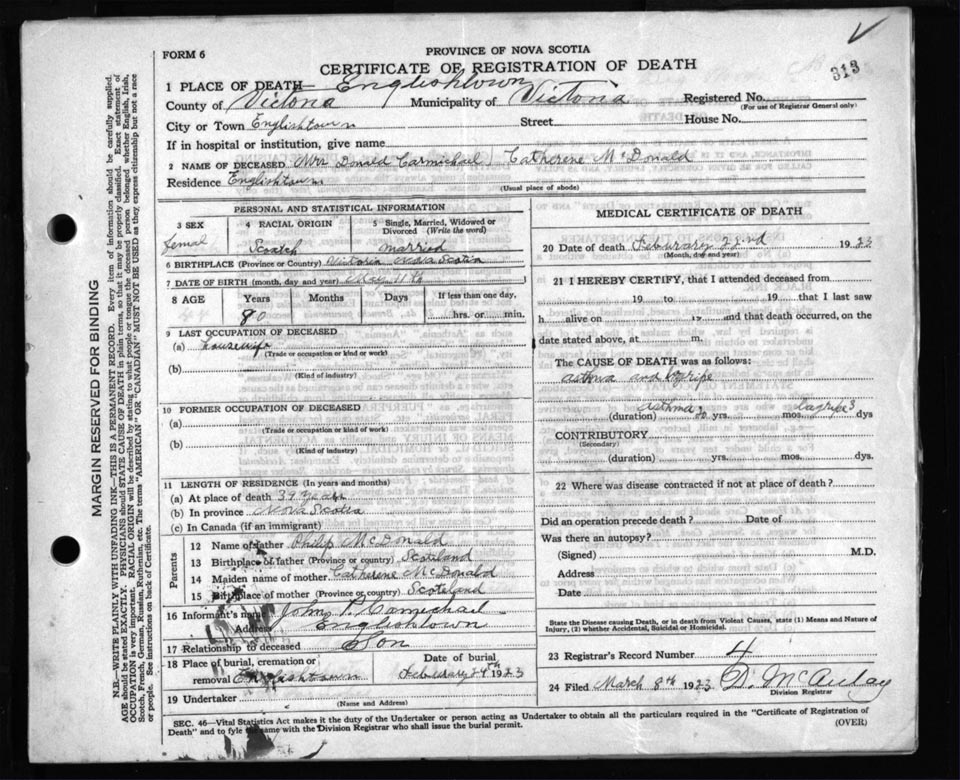 FORM 6
PROVINCE OF NOVA SCOTIA
CERTIFICATE OF REGISTRATION OF DEATH
313
1 PLACE OF DEATH— Englishtown
County of Victoria Municipality of Victoria Registered No.
(For use of Registrar General only)
City or Town Englishtown Street House No.
If in hospital or institution, give name
2 NAME OF DECEASED Mrs Donald Carmichael, Catherene McDonald
Residence Englishtown
(Usual place of abode)
PERSONAL AND STATISTICAL INFORMATION
3 SEX 4 RACIAL ORIGIN 5 Single, Married, Widowed or Divorced (Write the word)
Femal Scotch married
6 BIRTHPLACE (Province or Country) Victoria Nova Scotia
7 DATE OF BIRTH (month, day and year) May 11th
8 AGE Years Months Days If less than one day,
80 hrs. or min.
9 LAST OCCUPATION OF DECEASED
(a) housewife
(Trade or occupation or kind or work)
(b)
(Kind of industry)
10 FORMER OCCUPATION OF DECEASED
(a)
(Trade or occupation or kind or work)
(b)
(Kind of industry)
11 LENGTH OF RESIDENCE (In years and months)
(a) At place of death 39 years
(b) In province Nova Scotia
(c) In Canada (if an immigrant)
Parents
12 Name of father Philip McDonald
13 Birthplace of father (Province or Country) Scoteland
14 Maiden name of mother Catherene McDonald
15 Birthplace of mother (Province or country) Scoteland
16 Informant's name John P. Carmichael
Address Englishtown
17 Relationship to deceased Son
18 Place of burial, cremation or removal Englishtown Date of burial Feburary 24th 1923
19 Undertaker
(Name and Address)
MEDICAL CERTIFICATE OF DEATH
20 Date of death Feburary 22nd 1923
(Month, day and year)
21 I HEREBY CERTIFY, that I attended deceased from
19 to 19 that I last saw
h alive on 19 and that death occurred, on the
date stated above, at m.
The CAUSE OF DEATH was as follows:
asthma and lagripe
asthma lagripe 3
(duration) yrs. mos. dys
CONTRIBUTORY
(Secondary)
(duration) yrs. mos. dys.
22 Where was disease contracted if not at place of death?
Did an operation precede death? Date of
Was there an autopsy?
(Signed) M.D.
Address
Date
State the Disease causing Death, or in death from Violent Causes, state (1) Means and Nature of
Injury, (2) whether Accidental, Suicidal or Homicidal.
23 Registrar's Record Number 4
24 Filed March 8th 1923 D. McAulay
Division Registrar
SEC. 46—Vital Statistics Act makes it the duty of the Undertaker or person acting as Undertaker to obtain all the particulars required in the "Certificate of Registration of
Death" and to fyle the same with the Division Registrar who shall issue the burial permit. (OVER)
MARGIN RESERVED FOR BINDING
N.B.—WRITE PLAINLY WITH UNFADING INK—THIS IS A PERMANENT RECORD. Every item of information should be carefully supplied.
AGE should be stated EXACTLY. PHYSICIANS should STATE CAUSE OF DEATH in plain terms, so that it may be properly classified. Exact statement of
OCCUPATION is very important. RACIAL ORIGIN will be described by stating to what people or tongue the deceased person belonged whether English, Irish,
Scotch, French, German, Russian, Ruthenian, etc. The terms "AMERICAN" OR "CANADIAN" MUST NOT BE USED as they express citizenship but not a race
or people. See instructions on back of Certificate.